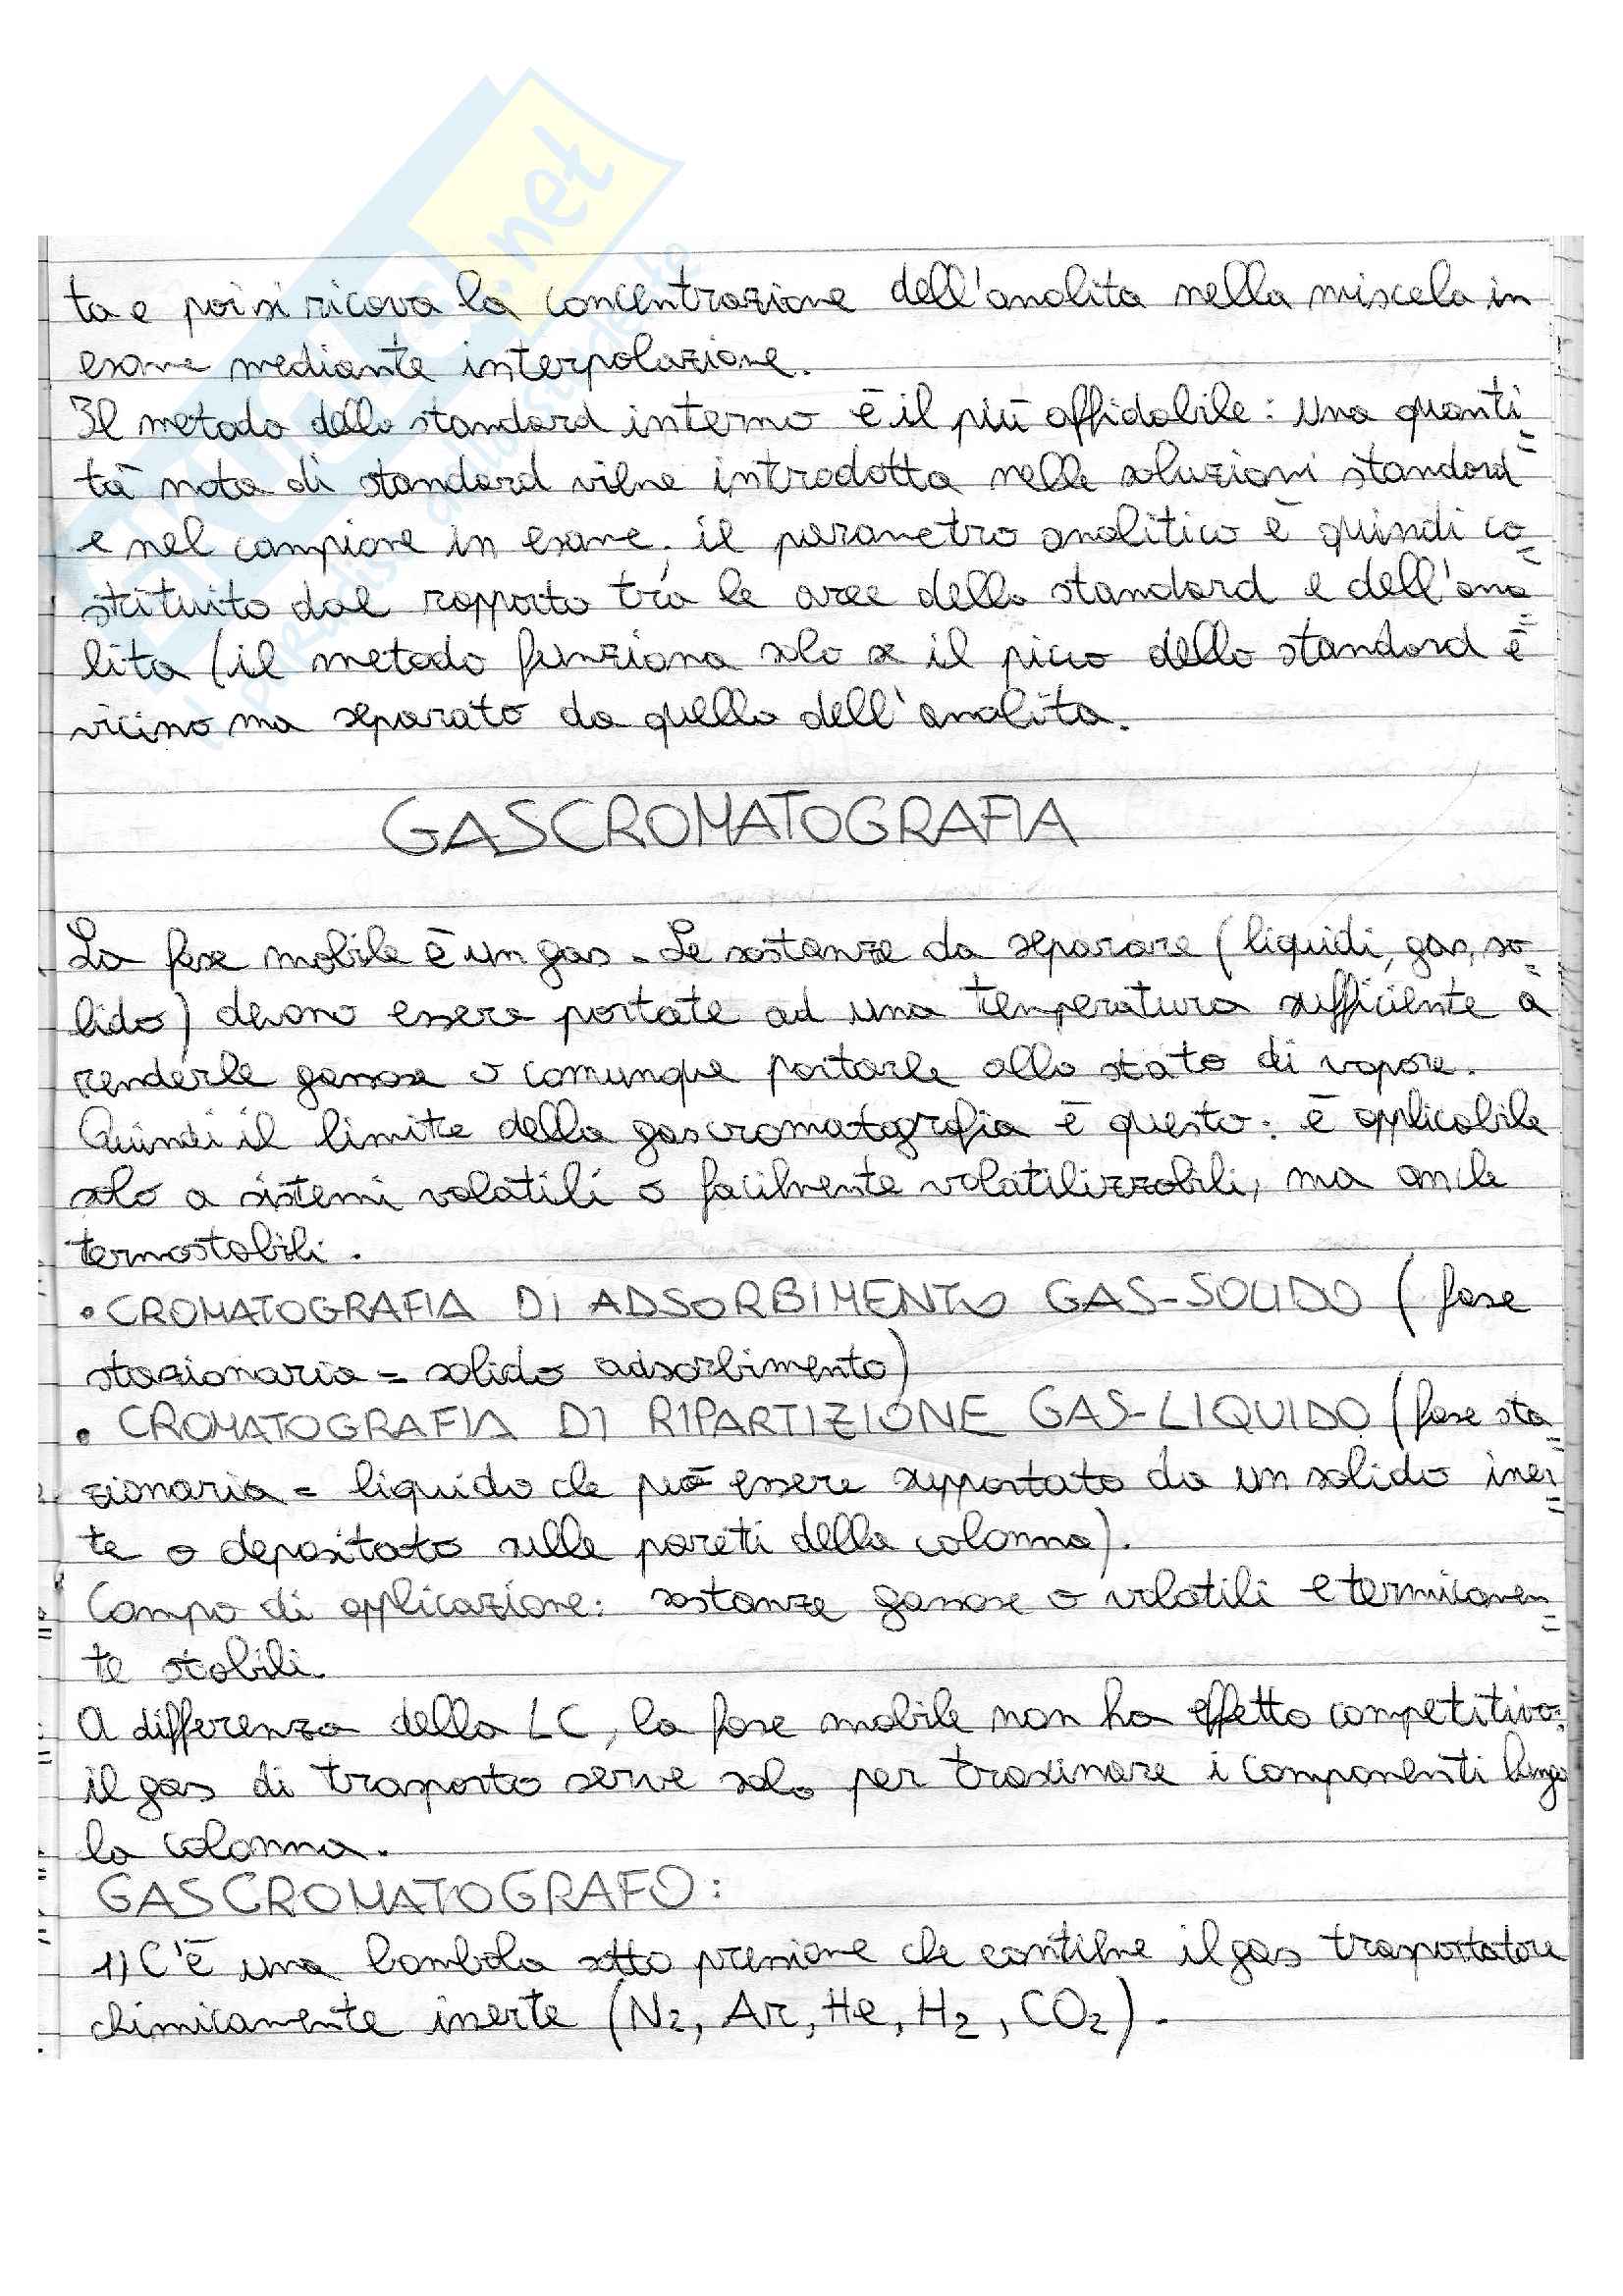 ta e poi si ricava la concentrazione dell'analita nella miscela in
esame mediante interpolazione.
Il metodo dello standard interno è il più affidabile: una quanti
tà nota di standard viene introdotta nelle soluzioni standard
e nel campione in esame; il parametro analitico è quindi co
stituito dal rapporto tra le aree dello standard e dell'ana
lita (il metodo funziona solo se il picco dello standard è
vicino ma separato da quello dell'analita.
GASCROMATOGRAFIA
La fase mobile è un gas. Le sostanze da separare (liquidi, gas, so
lido) devono essere portate ad una temperatura sufficiente a
renderle gassose o comunque portarle allo stato di vapore.
Quindi il limite della gascromatografia è questo: è applicabile
solo a sistemi volatili o facilmente volatilizzabili, ma anche
termostabili.
• CROMATOGRAFIA DI ADSORBIMENTO GAS-SOLIDO (fase
stazionaria = solido adsorbimento)
• CROMATOGRAFIA DI RIPARTIZIONE GAS-LIQUIDO (fase sta
zionaria = liquido che può essere supportato da un solido iner
te o depositato sulle pareti della colonna).
Campo di applicazione: sostanze gassose o volatili e termicamen
te stabili.
A differenza della LC, la fase mobile non ha effetto competitivo:
il gas di trasporto serve solo per trascinare i componenti lungo
la colonna.
GASCROMATOGRAFO:
1) C'è una bombola sotto pressione che contiene il gas trasportatore
chimicamente inerte (N2, Ar, He, H2, CO2).
.net